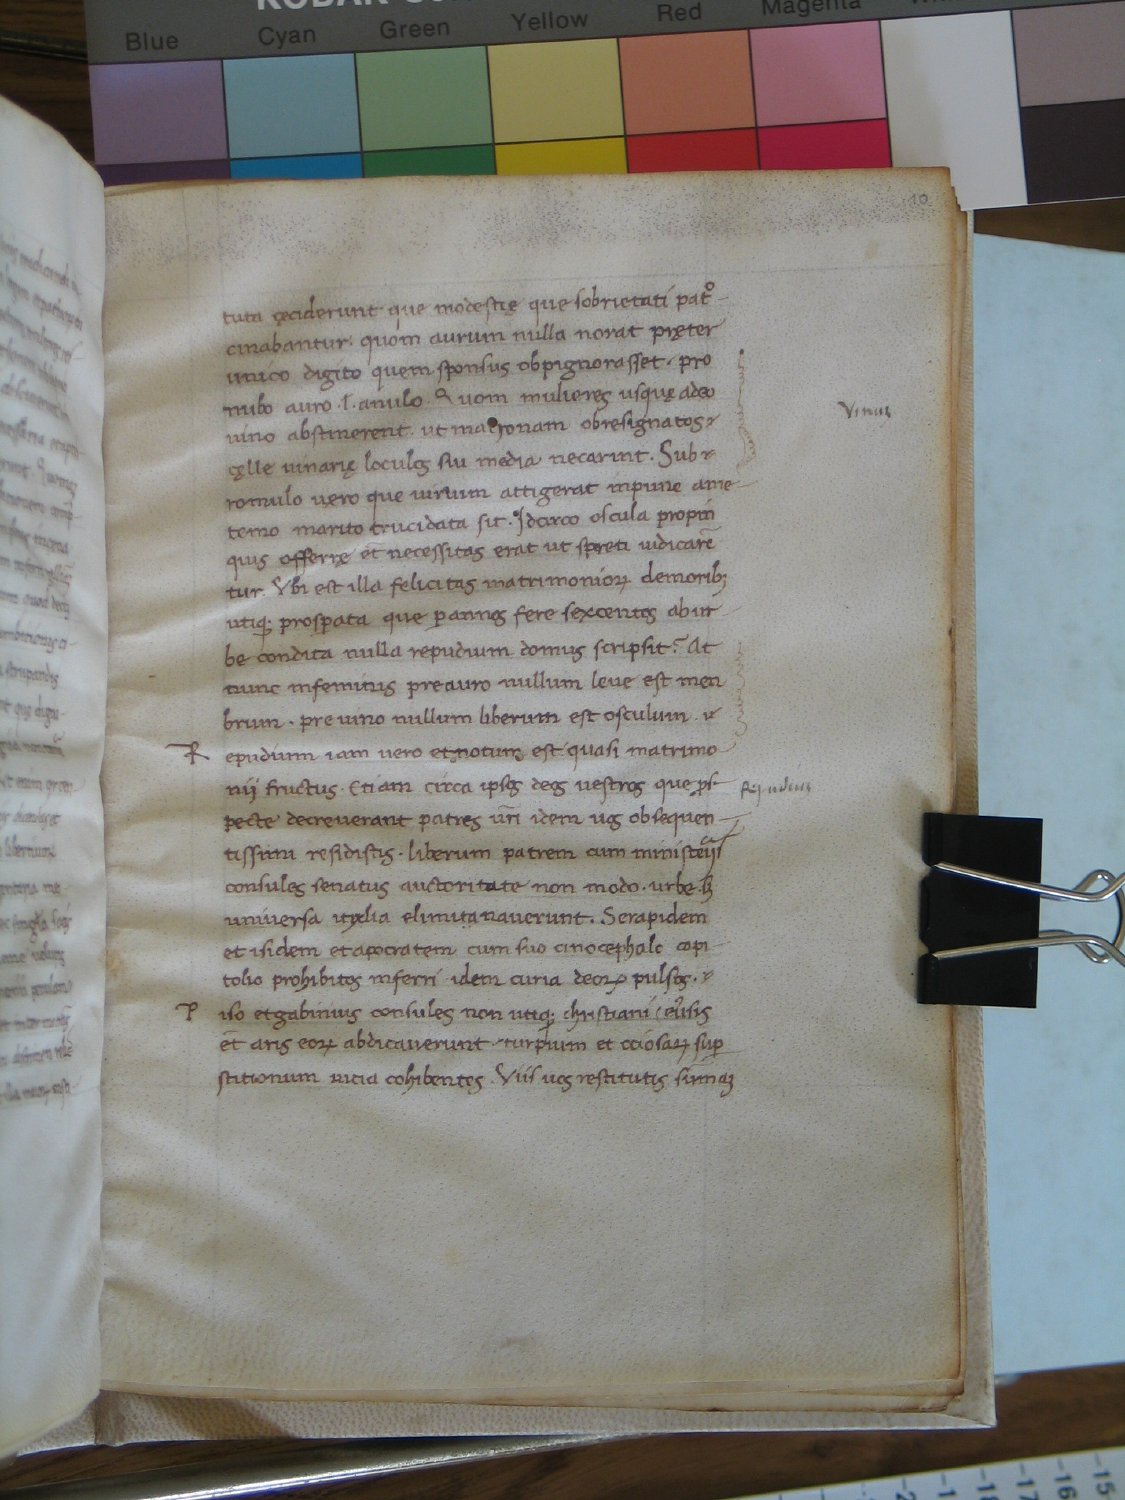 Blue Cyan Green Yellow Red Magenta
10
tuta cęciderunt que modestię que sobrietati pat°
cinabantur. quom aurum nulla norat pręter
unico digito quem sponsus obpignorasset. pro
nubo auro .l. anulo. Quom mulieres usquę adeo
Vinus
uino abstinerent. ut matronam obresignatos
cęlle uinarię loculos sui media necarint. Sub
romulo uero que uirum attigerat inpune ame
temo marito trucidata sit. Idcirco oscula propin
quis offerrę et̄ necessitas erat ut spretū iudicare
tur. Vbi est illa felicitas matrimonioꝝ demorib;
utiq; prosꝑata que ꝑ annos fere sexcentos ab ur
be condita nulla repudium domus scripsit? At
nunc infeminis pre auro nullum leue est men
brum. pre uino nullum liberum est osculum.
Repudium iam uero et uotum est quasi matrimo
nii fructus. Etiam circa ipsos deos uestros que ꝓs
Repudium
pecte decreuerant patres ur̄i idem uos obsequen
tissimi residistis. liberum patrem cum ministerijs
consules senatus auctoritate non modo. urbe. sꝫ
uniuersa italia eliminauerunt. Serapidem
et isidem et apocratem cum suo cinocephalo capi
tolio prohibitos inferri idem curia deoꝝ pulsos.
Piso et gabinius consules non utiq; christiani euersis
et̄ aris eoꝝ abdicauerunt. turpium et ociosaꝝ suꝑ
stitionum uicia cohibentes. Viis uos restitutis summaꝫ